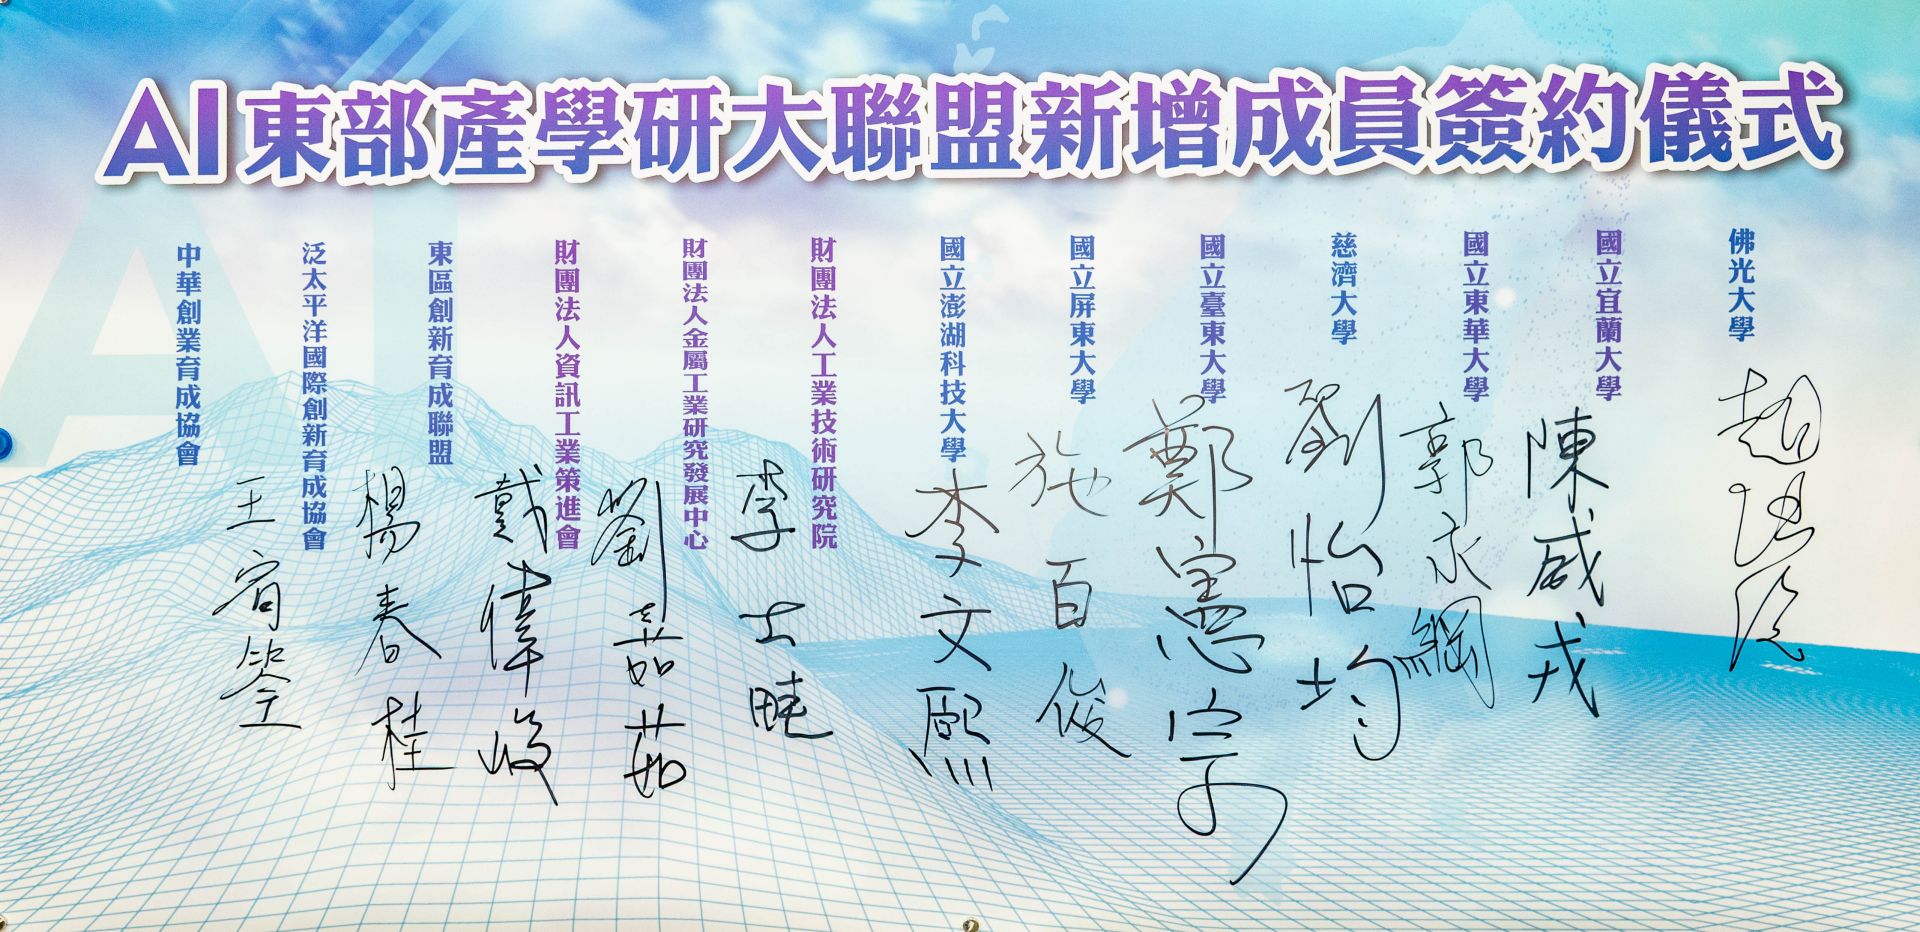 AI東部產學研大聯盟新增成員簽約儀式
佛光大學
國立宜蘭大學
國立東華大學
慈濟大學
國立臺東大學
國立屏東大學
國立澎湖科技大學
財團法人工業技術研究院
財團法人金屬工業研究發展中心
財團法人資訊工業策進會
東區創新育成聯盟
泛太平洋國際創新育成協會
中華創業育成協會
陳威戎
郭永綱
劉怡均
鄭憲宗
施百俊
李文熙
李士畦
劉嘉茹
戴偉峻
楊春桂